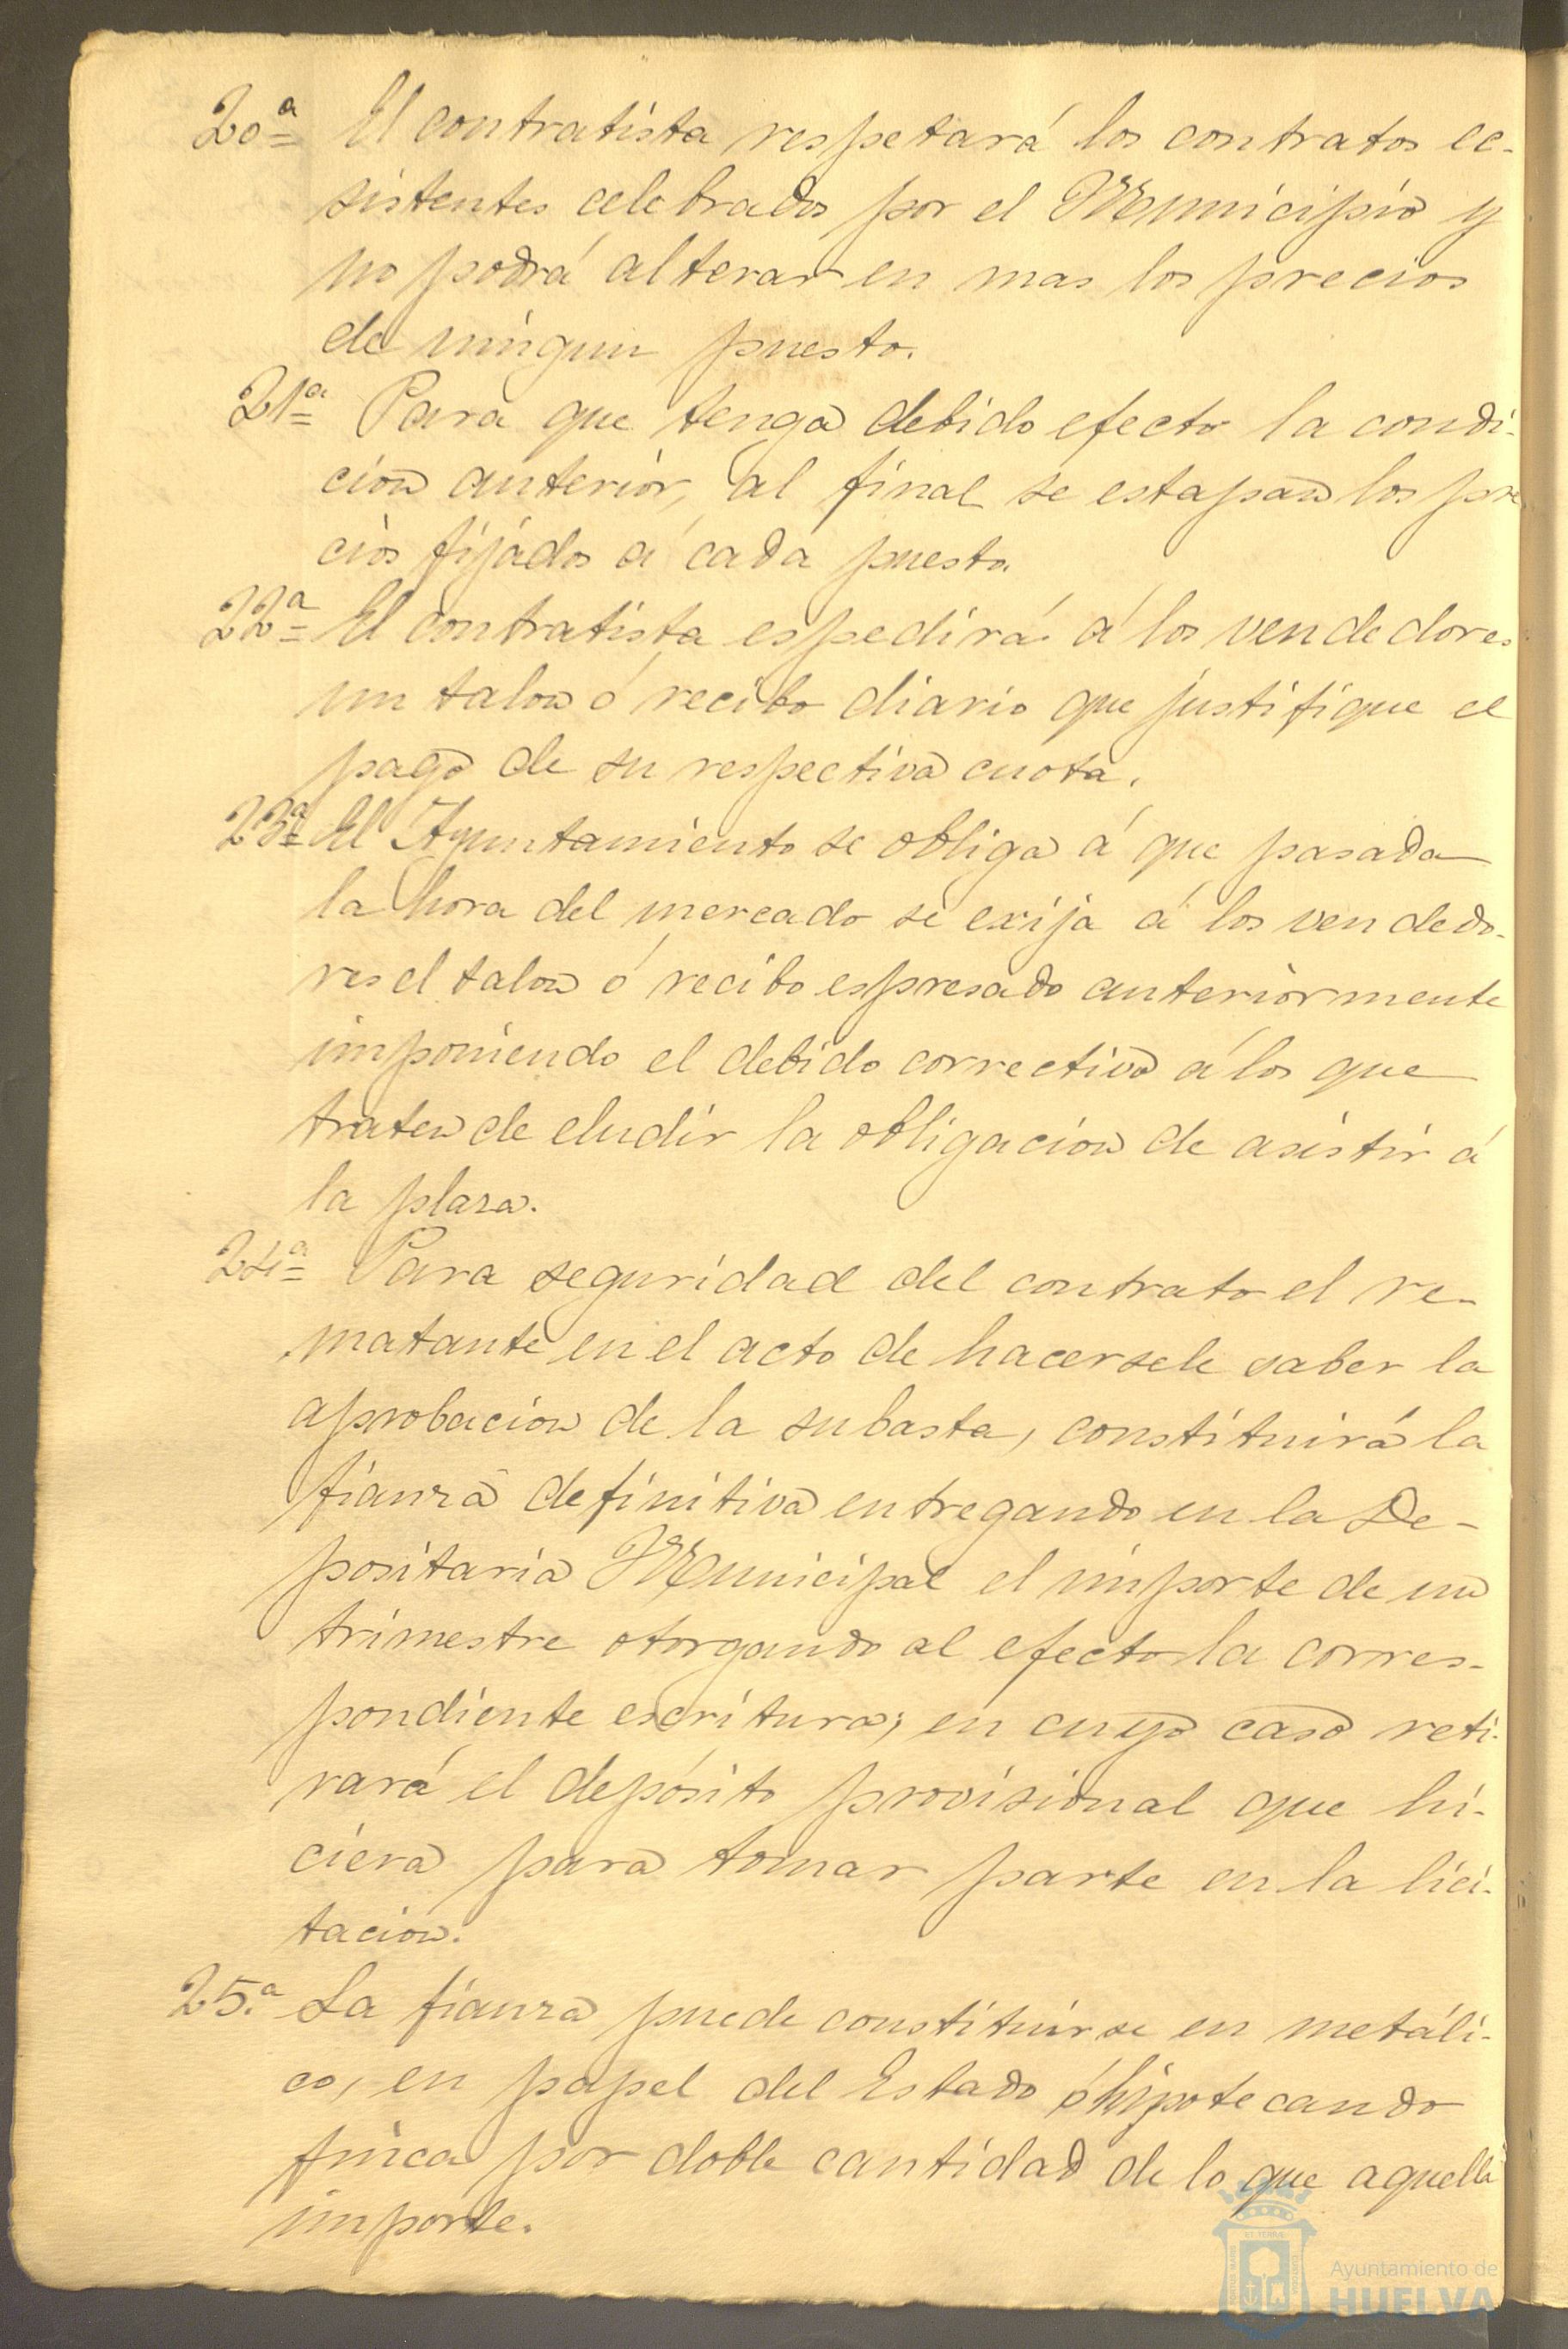 20ª El contratista respetará los contratos ec-
sistentes celebrados por el Municipio y
no podrá alterar en mas los precios
de ningun puesto.
21ª Para que tenga debido efecto la condi-
cion anterior, al final se estapan los pre
cios fijádos á cada puesto.
22ª El contratista espedirá á los vendedores
un talon ó recibo diario que justifique el
pago de su respectiva cuota.
23ª El Ayuntamiento se obliga á que pasada
la hora del mercado se exija á los vendedo-
res el talon ó recibo espresado anteriormente
imponiendo el debido correctivo á los que
traten de eludir la obligacion de asistir á
la plasa.
24ª Para seguridad del contrato el re-
matante en el acto de hacersele saber la
aprobacion de la subasta, constituirá la
fianza definitiva entregando en la De-
positaria Municipal el importe de un
trimestre otorgando al efecto la corres-
pondiente escritura; en cuyo caso reti-
rará el depósito provisional que hi-
ciera para tomar parte en la lici-
tacion.
25.ª La fianza puede constituirse en metáli-
co, en papel del Estado ó hipotecando
finca por doble cantidad de lo que aquella
importe.
Ayuntamiento de
HUELVA